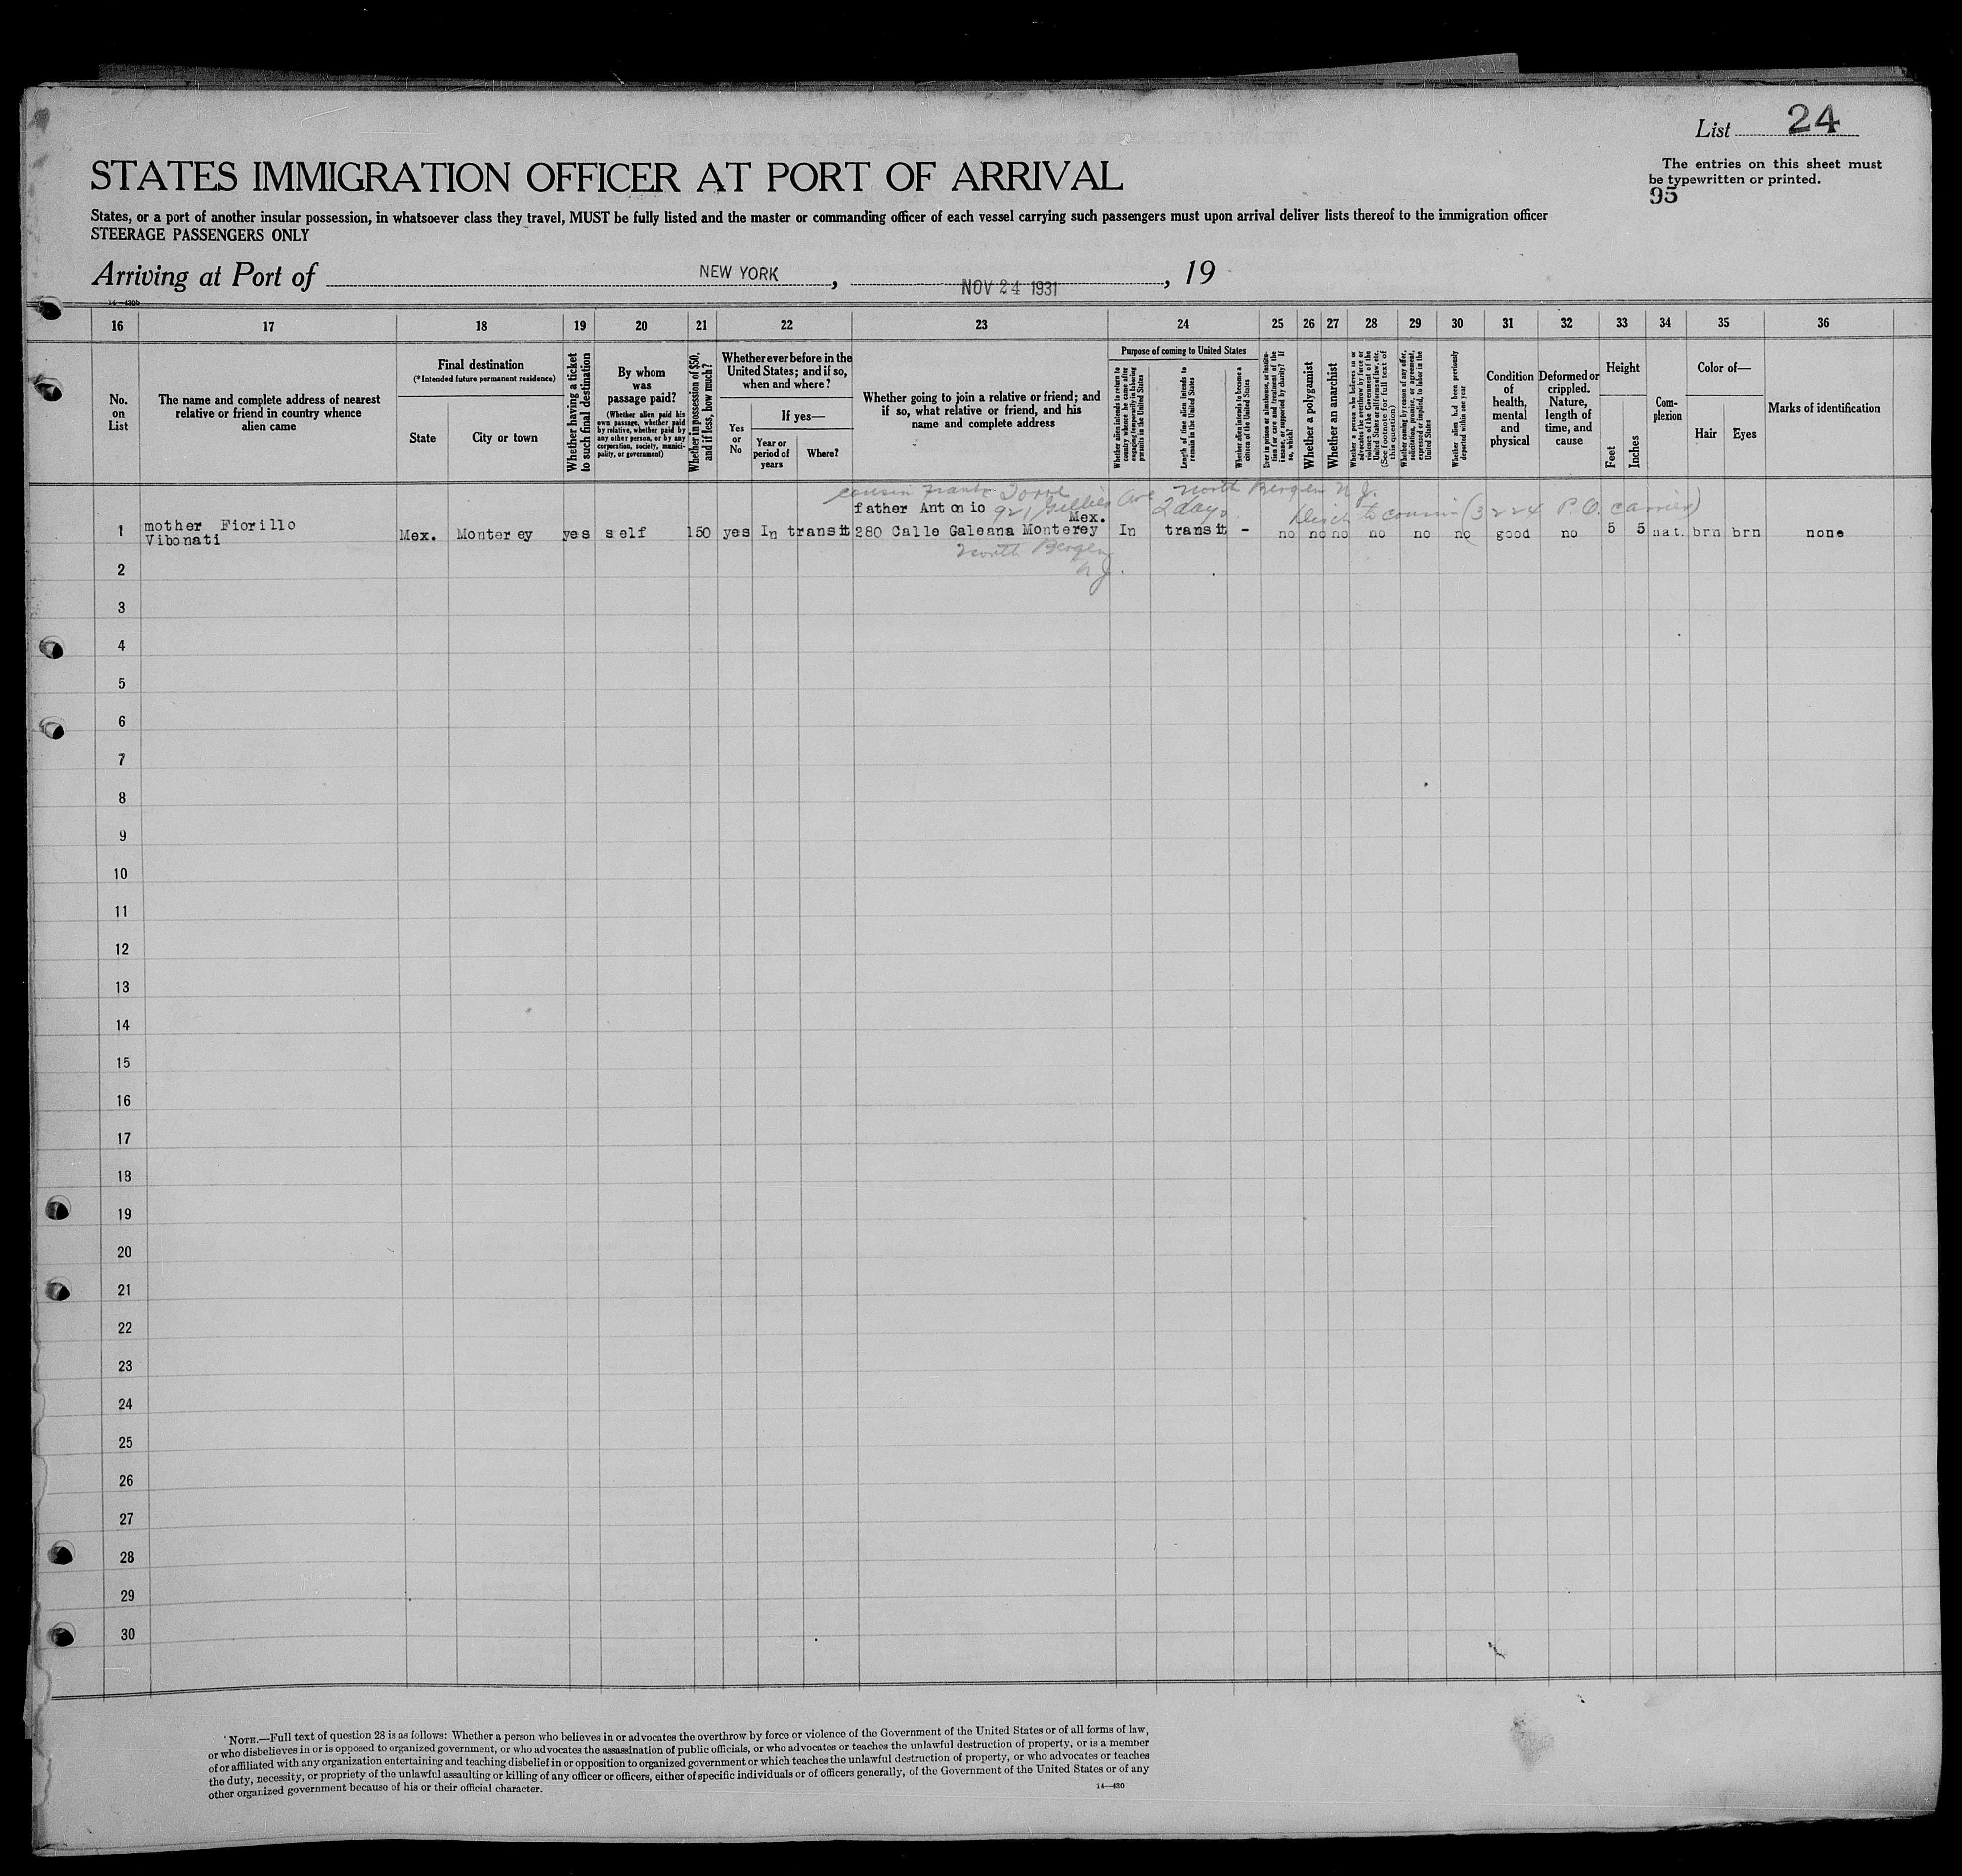 List 24
The entries on this sheet must
be typewritten or printed.
95
STATES IMMIGRATION OFFICER AT PORT OF ARRIVAL
States, or a port of another insular possession, in whatsoever class they travel, MUST be fully listed and the master or commanding officer of each vessel carrying such passengers must upon arrival deliver lists thereof to the immigration officer
STEERAGE PASSENGERS ONLY
Arriving at Port of NEW YORK, NOV 24 1931, 19
14—430b
16 17 18 19 20 21 22 23 24 25 26 27 28 29 30 31 32 33 34 35 36
No.
on
List
The name and complete address of nearest
relative or friend in country whence
alien came
Final destination
(*Intended future permanent residence)
State
City or town
Whether having a ticket
to such final destination
By whom
was
passage paid?
(Whether alien paid his
own passage, whether paid
by relative, whether paid by
any other person, or by any
corporation, society, munici-
pality, or government)
Whether in possession of $50,
and if less, how much?
Whether ever before in the
United States; and if so,
when and where?
Yes
or
No
If yes—
Year or
period of
years
Where?
Whether going to join a relative or friend; and
if so, what relative or friend, and his
name and complete address
Purpose of coming to United States
Whether alien intends to return to
country whence he came after
engaging temporarily in laboring
pursuits in the United States
Length of time alien intends to
remain in the United States
Whether alien intends to become a
citizen of the United States
Ever in prison or almshouse, or institu-
tion for care and treatment of the
insane, or supported by charity? If
so, which?
Whether a polygamist
Whether an anarchist
Whether a person who believes in or
advocates the overthrow by force or
violence of the Government of the
United States or all forms of law, etc.
(See footnote for full text of
this question)
Whether coming by reason of any offer,
solicitation, promise, or agreement,
expressed or implied, to labor in the
United States
Whether alien had been previously
deported within one year
Condition
of
health,
mental
and
physical
Deformed or
crippled.
Nature,
length of
time, and
cause
Height
Feet
Inches
Com-
plexion
Color of—
Hair
Eyes
Marks of identification
cousin Frank North Bergen N.J.
father Antonio 921 Gillies Ave 2 days Disch to cousin (3224 P.O. carrier)
Mex.
1 mother Fiorillo
Vibonati
Mex. Monterey yes self 150 yes In transit 280 Calle Galeana Monterey In transit - no no no no no no good no 5 5 nat. brn brn none
North Bergen
N.J.
2
3
4
5
6
7
8
9
10
11
12
13
14
15
16
17
18
19
20
21
22
23
24
25
26
27
28
29
30
NOTE.—Full text of question 28 is as follows: Whether a person who believes in or advocates the overthrow by force or violence of the Government of the United States or of all forms of law,
or who disbelieves in or is opposed to organized government, or who advocates the assassination of public officials, or who advocates or teaches the unlawful destruction of property, or is a member
of or affiliated with any organization entertaining and teaching disbelief in or opposition to organized government or which teaches the unlawful destruction of property, or who advocates or teaches
the duty, necessity, or propriety of the unlawful assaulting or killing of any officer or officers, either of specific individuals or of officers generally, of the Government of the United States or of any
other organized government because of his or their official character.
14—430